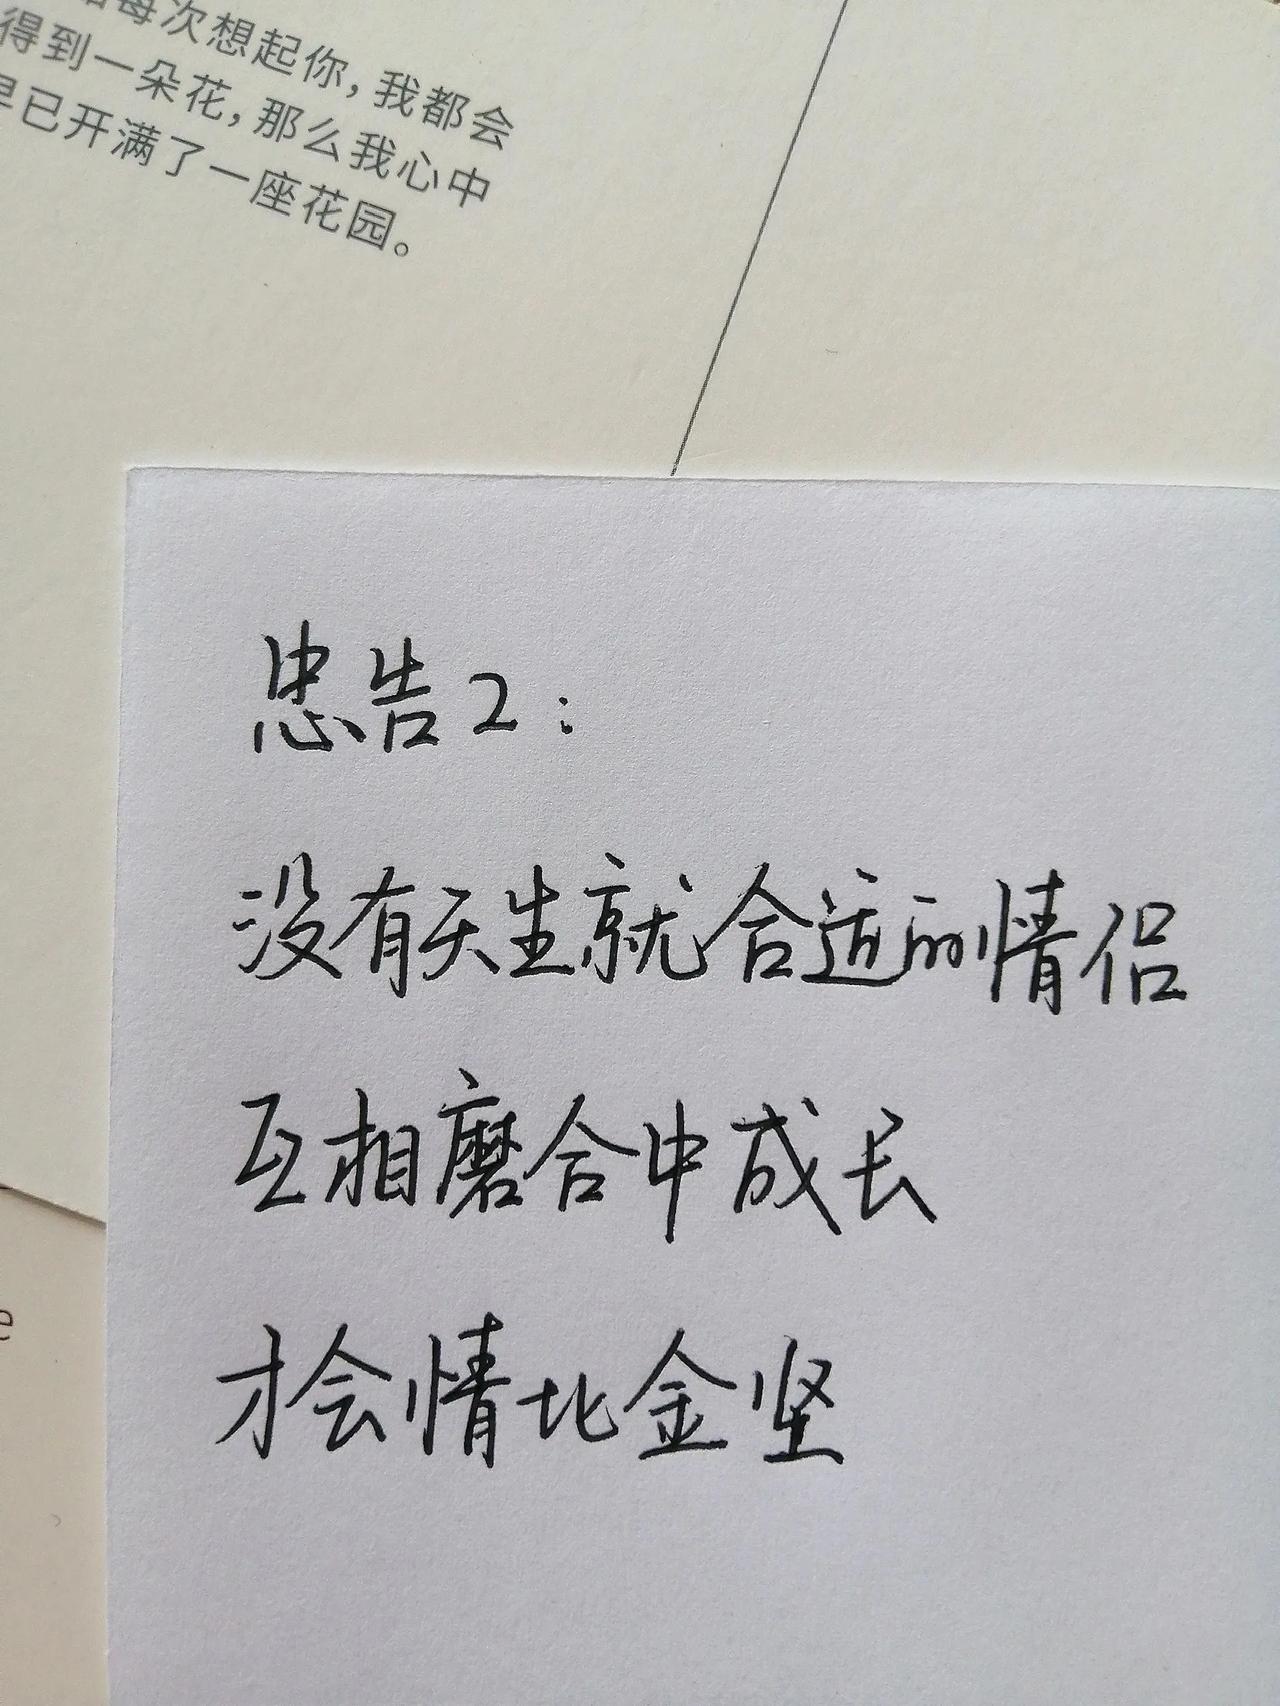 每次想起你，我都会
得到一朵花，那么我心中
早已开满了一座花园。
忠告2：
没有天生就合适的情侣
互相磨合中成长
才会情比金坚
e